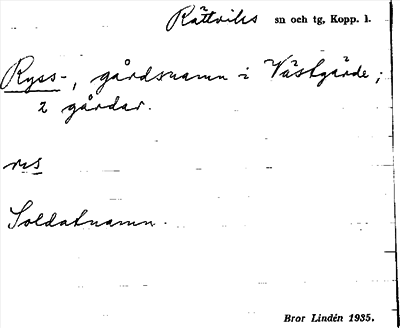 Rättviks sn och tg, Kopp. l.
Ryss-, gårdsnamn i Västgärde;
2 gårdar.
rus
Soldatnamn.
Bror Lindén 1935.